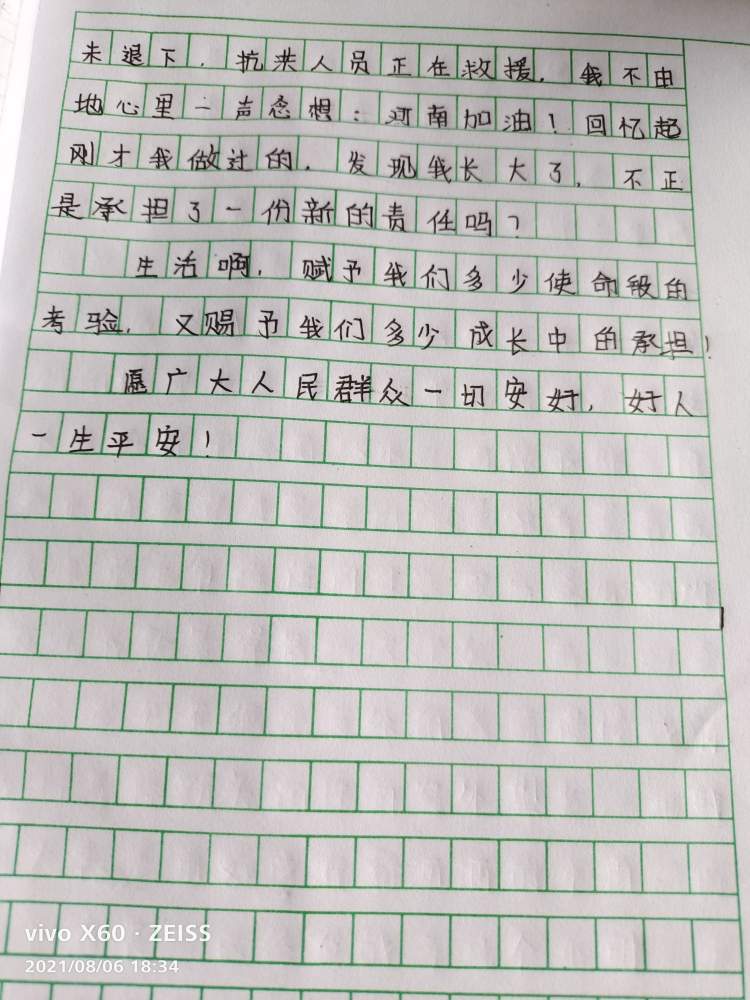 未退下，抗洪人员正在救援，我不由
地心里一声念想：河南加油！回忆起
刚才我做过的，发现我长大了，不正
是承担了一份新的责任吗？
生活啊，赋予我们多少使命般的
考验，又赐予我们多少成长中的承担！
愿广大人民群众一切安好，好人
一生平安！
vivo X60 · ZEISS
2021/08/06 18:34